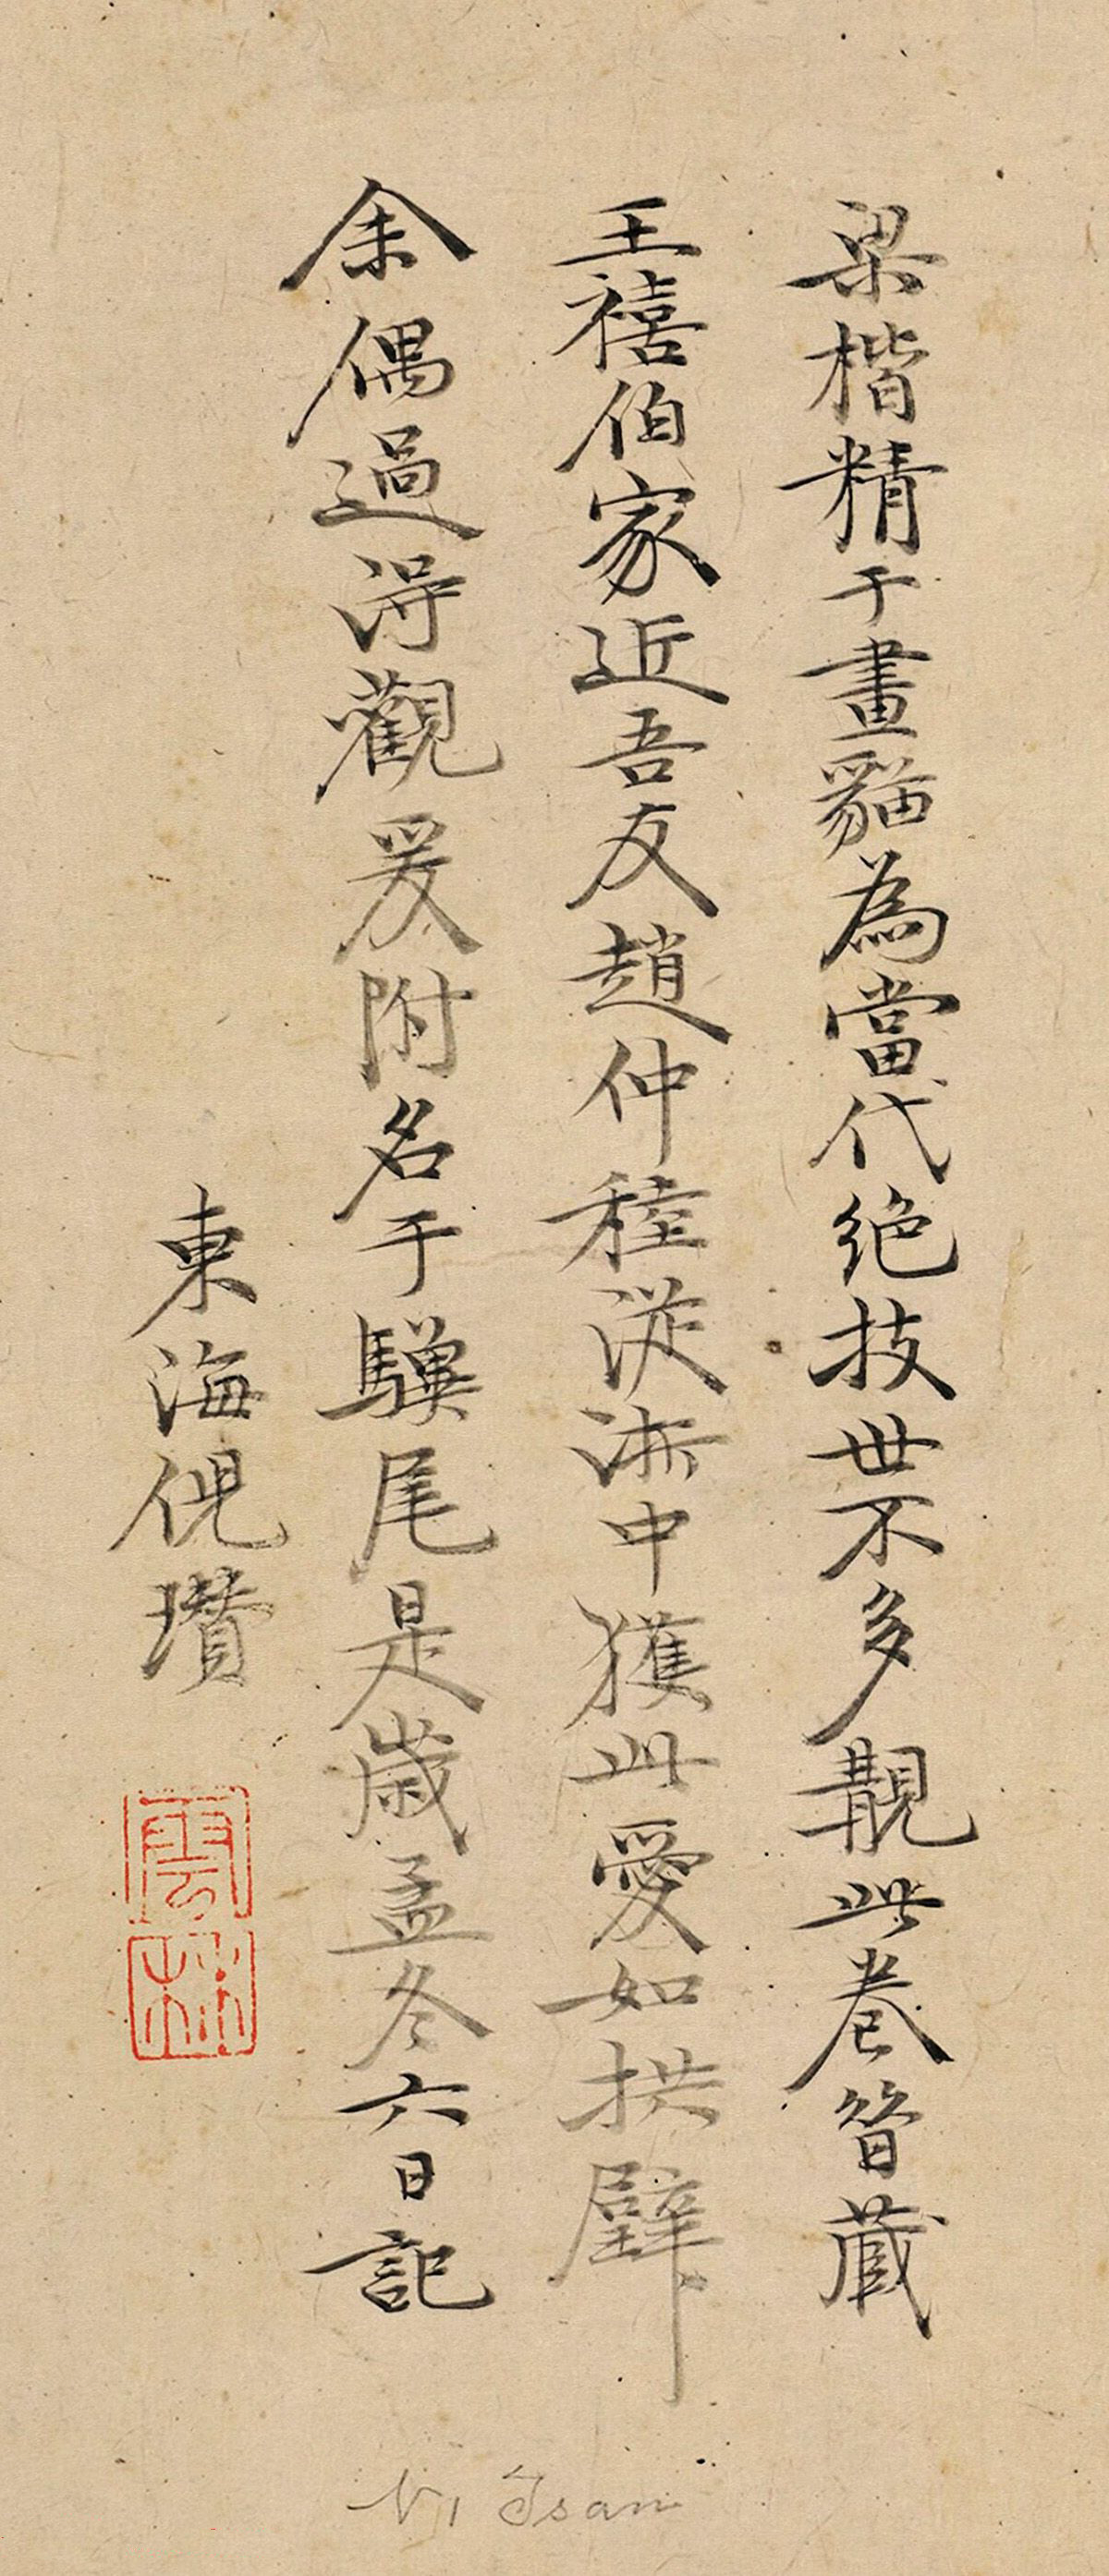 梁楷精于畫貓為當代絕技世不多觀此卷曾藏
王禧伯家近吾友趙仲穆從浙中獲此愛如拱璧
余偶過得觀爰附名于驥尾是歲孟冬六日記
東海倪瓚
雲林
Ni Tsan